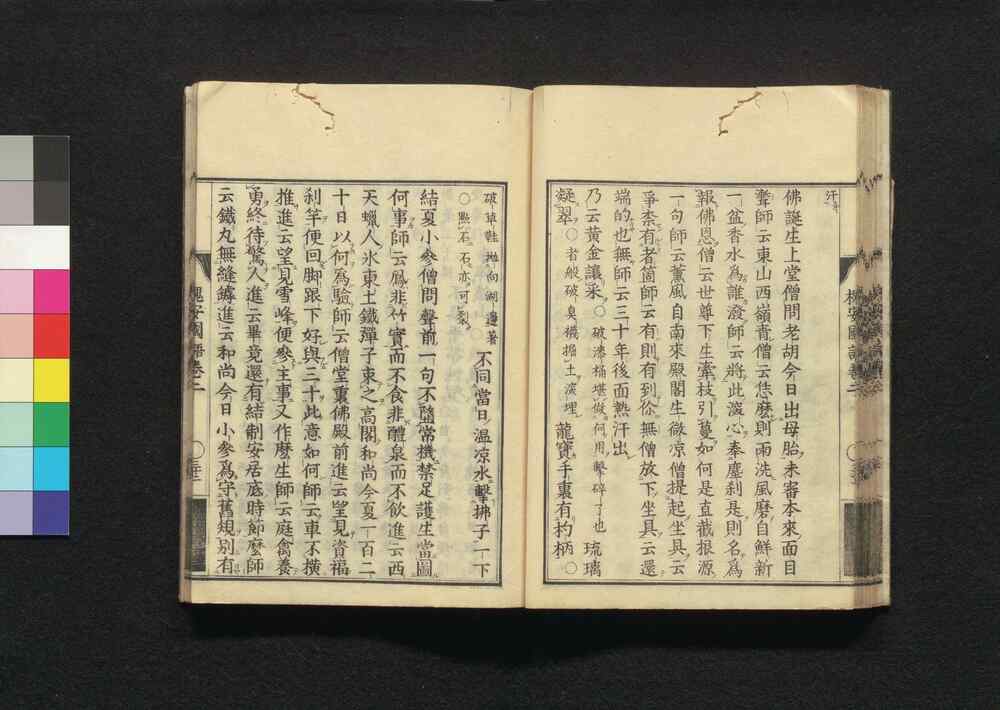 佛誕生上堂僧問老胡今日出母胎未審本來面目
聻師云東山西嶺青僧云恁麼則雨洗風磨自鮮新
一盆香水為誰潑師云將此深心奉塵刹是則名為
報佛恩僧云世尊下生牽枝引蔓如何是直截根源
一句師云薰風自南來殿閣生微凉僧提起坐具云
爭柰有者箇師云有則有到你無僧放下坐具云還
端的也無師云三十年後面熱汗出
乃云黄金讓采○破漆桶堪做何用擊碎了也琉璃
凝翠○者般破臭機掘土深埋龍寶手裏有杓柄○
破草鞋拋向湖邊著不同當日溫凉水擊拂子一下
○點石石亦可
結夏小參僧問聲前一句不墮常機禁足護生當圖
何事師云鳳非竹實而不食非醴泉而不飲進云西
天蠟人氷東土鐵彈子束之高閣和尚今夏一百二
十日以何為驗師云僧堂裏佛殿前進云望見資福
刹竿便回脚跟下好與三十此意如何師云車不橫
推進云望見雪峰便參主事又作麼生師云庭禽養
勇終待驚人進云畢竟還有結制安居底時節麼師
云鐵丸無縫罅進云和尚今日小參為守舊規別有
槐安國語卷二